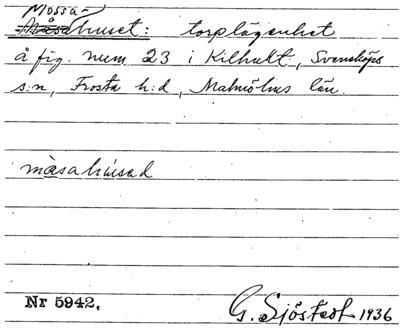 Mossa-
Måsahuset: torplägenhet
å fig. num 23 i Kilhult, Svensköps
s:n, Frosta h:d, Malmöhus län.
måsahúsad
Nr 5942.
G. Sjöstedt 1936